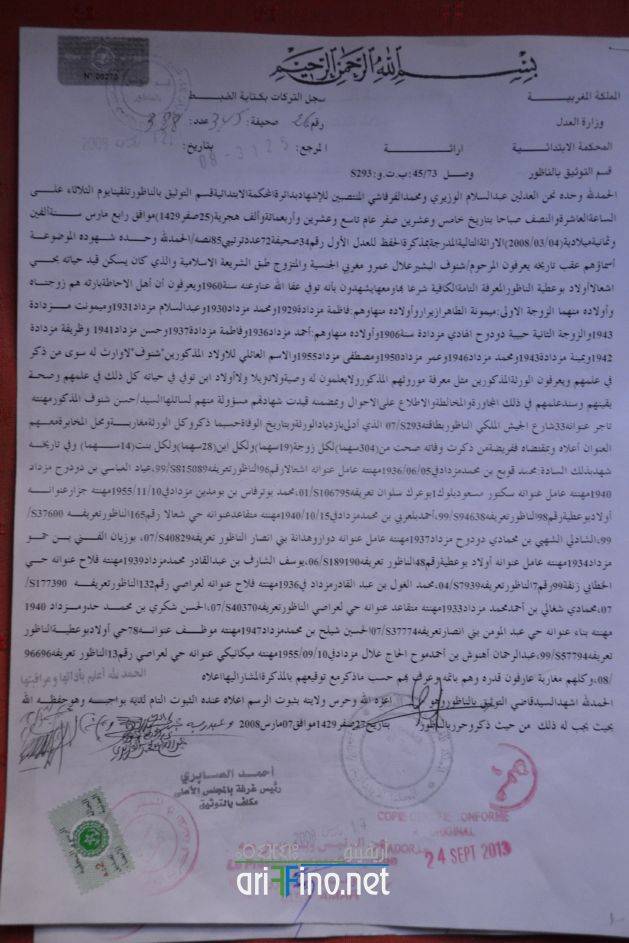 بسم الله الرحمن الرحيم
N° 00273
المملكة المغربية
وزارة العدل
المحكمة الابتدائية
قسم التوثيق بالناظور
سجل التركات بكتابة الضبط
رقم 26 صحيفة: 345 عدد: 338
اراثة
المرجع: بتاريخ:
08 - 3125
وصل 45/73: ب.ت.و: S293
الحمدلله وحده نحن العدلين عبدالسلام الوزيري ومحمد القرفاشي المنتصبين للإشهاد بدائرة المحكمة الابتدائية قسم التوثيق بالناظور تلقينا يوم الثلاثاء على
الساعة العاشرة والنصف صباحا بتاريخ خامس وعشرين صفر عام تاسع وعشرين وأربعمائة وألف هجرية (25صفر1429) موافق رابع مارس سنة ألفين
وثمانية ميلادية (2008/03/04) الاراثة التالية المدرجة بمذكرة الحفظ للعدل الأول رقم34 صحيفة72 عدد ترتيبي85 نصه/الحمدلله وحده شهوده الموضوعة
أسماؤهم عقب تاريخه يعرفون المرحوم/شنوف البشير علال عمرو مغربي الجنسية والمتزوج طبق الشريعة الاسلامية والذي كان يسكن قيد حياته بحي
اشغالا أولاد بوعطية الناظور المعرفة التامة الكافية شرعا بها ومعها يشهدون بأنه توفي عفا الله عنا وعنه سنة1960 ويعرفون أن أهل الاحاطة بارثه هم زوجتاه
وأولاده منهما الزوجة الاولى: ميمونة الطاهر ازيرار وأولاده منها وهم: فاطمة مزدادة1929 ومحمد مزداد1930 وعبدالسلام مزداد1931 وميمونت مزدادة
1943 والزوجة الثانية حبيبة دودوح الهادي مزدادة سنة1906 وأولاده منها وهم: أحمد مزداد1936 وفاطمة مزدادة1937 وحسن مزداد1941 وظريفة مزدادة
1942 ويمينة مزدادة1943 ومحمد مزداد1946 وعمر مزداد1950 ومصطفى مزداد1955 والاسم العائلي للاولاد المذكورين"شنوف" لاوارث له سوى من ذكر
في علمهم ويعرفون الورثة المذكورين مثل معرفة موروثهم المذكور ولايعلمون له وصية ولاتنزيلا ولا أولاد ابن توفي في حياته كل ذلك في علمهم وصحة
يقينهم وسند علمهم في ذلك المجاورة والمخالطة والاطلاع على الاحوال وبمضمنه قيدت شهادتهم مسؤولة منهم لسائلها السيد/حسن شنوف المذكور مهنته
تاجر عنوانه33 شارع الجيش الملكي الناظور بطاقته S293/07
العنوان أعلاه وبمقتضاه ففريضة من ذكرت وفاته صحت من(304سهما) لكل زوجة(19سهما) ولكل ابن(28سهما) ولكل بنت(14سهما) وفي تاريخه
شهد بذلك السادة: محمد قويع بن محمد مزداد في1936/06/05 مهنته عامل عنوانه اشغالا رقم96 الناظور تعريفه S15089/99، عياد العباسي بن دودوح مزداد
1940 مهنته عامل عنوانه سكتور مسعود بلوك1 بوعرك سلوان تعريفه S106795/01، محمد بوترفاس بن بومدين مزداد في1955/11/10 مهنته جزار عنوانه
أولاد بوعطية رقم98 الناظور تعريفه S94638/99، أحمد بلعربي بن محمد مزداد في1940/10/15 مهنته متقاعد عنوانه حي شعالا رقم165 الناظور تعريفه S37600/
99، الشاذلي الشهبي بن محمادي دودوح مزداد1937 مهنته عامل عنوانه دوار وهدانة بني انصار الناظور تعريفه S40829/07، بوزيان الفني بن حمو
مزداد1934 مهنته عامل عنوانه أولاد بوعطية رقم48 الناظور تعريفه S189190/06، يوسف الشارف بن عبدالقادر محمد مزداد1939 مهنته فلاح عنوانه حي
الخطابي زنقة99 رقم7 الناظور تعريفه S7939/04، محمد الغول بن عبد القادر مزداد في1936 مهنته فلاح عنوانه لعراصي رقم132 الناظور تعريفه S177390/
07، محمادي شغالي بن أحمد محمد مزداد1933 مهنته متقاعد عنوانه حي لعراصي الناظور تعريفه S40370/07، الحسن شكري بن محمد حدو مزداد 1940
مهنته بناء عنوانه حي عبد المومن بني انصار تعريفه S37774/07، الحسين شيلح بن محمد مزداد1947 مهنته موظف عنوانه78 حي أولاد بوعطية الناظور
تعريفه S57794/99، عبدالرحمان أهنوش بن أحمد موح الحاج علال مزداد في1955/09/10 مهنته ميكانيكي عنوانه حي لعراصي رقم13 الناظور تعريفه 96696
/08، وكلهم مغاربة عارفون قدره وهم باتمه وعرف بهم حسب ماذكر مع توقيعهم بالمذكرة المشار اليها اعلاه
الحمد لله أعلم بأدائها ومراقبتها
الحمدلله اشهد السيد قاضي التوثيق بالناظور وهو أعزه الله وحرس ولايته بثبوت الرسم اعلاه عنده الثبوت التام لديه بواجبه وهو حفظه الله
بحيث يجب له ذلك من حيث ذكر وحرر بالناظور بتاريخ27 صفر1429 موافق07 مارس2008
أحمد الصابري
رئيس غرفة بالمجلس الأعلى
مكلف بالتوثيق
COPIE CERTIFIEE CONFORME
A L'ORIGINAL
NADOR
24 SEPT 2013
أريفينو
ariffino.net